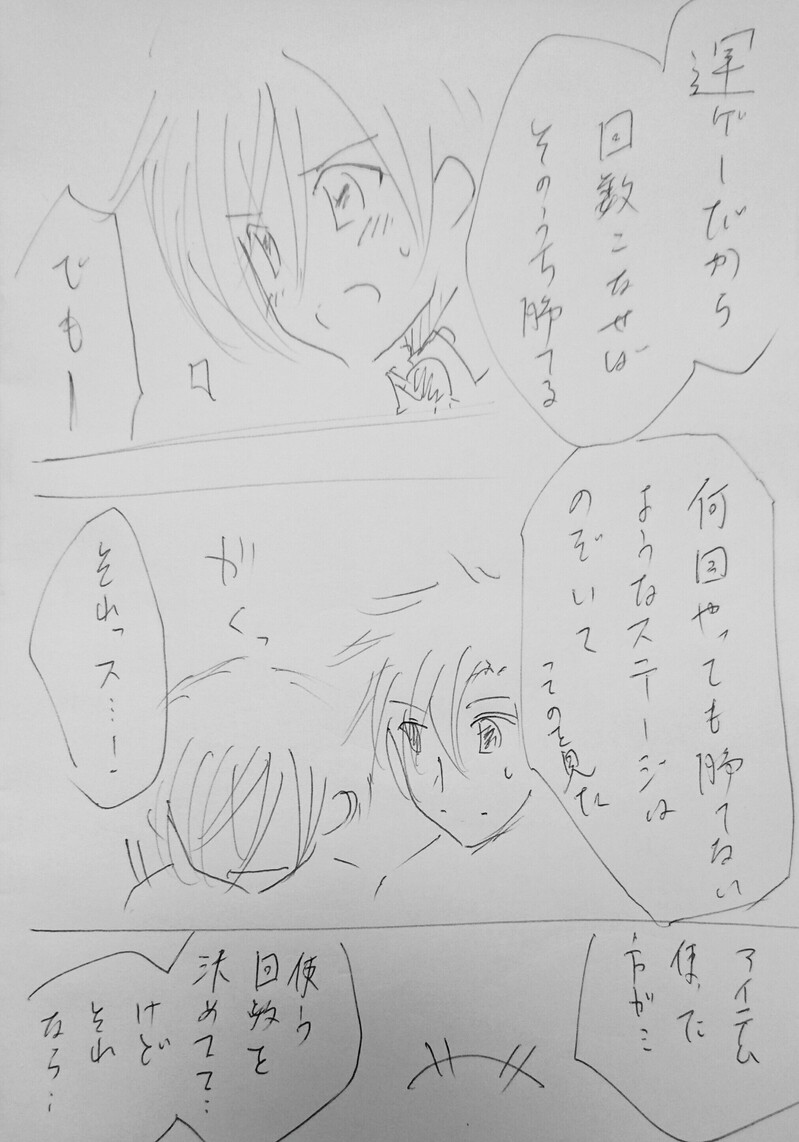 運ゲーだから
回数こなせば
そのうち勝てる
でもー
何回やっても勝てない
ようなステージは
のぞいて
ってのを見た
がくっ
それっス…!
アイテム
使った
方が…
使う
回数を
決めてて…
けど
それ
なら…